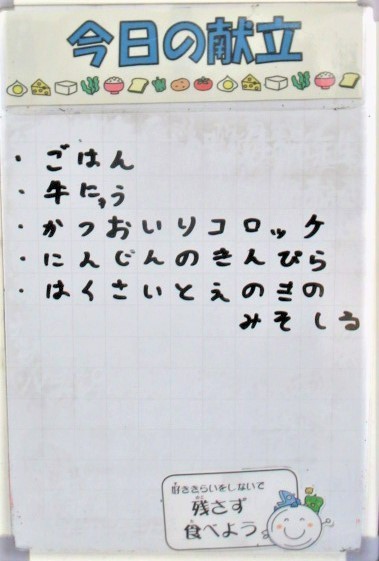 今日の献立
・ごはん
・牛にゅう
・かつおいりコロッケ
・にんじんのきんぴら
・はくさいとえのきの
みそしる
好ききらいをしないで
残さず
食べよう。